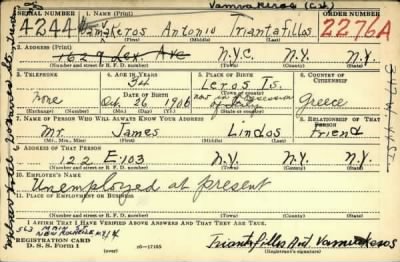 Vamvakeros (cq)
SERIAL NUMBER 1. NAME (Print) ORDER NUMBER
4244 Vamvakeros Antonio Triantafillos 2276A
(First) (Middle) (Last)
2. ADDRESS (Print)
1629 Lex. Ave N.Y.C. N.Y. N.Y.
(Number and street or R. F. D. number) (Town) (County) (State)
3. TELEPHONE 4. AGE IN YEARS 5. PLACE OF BIRTH 6. COUNTRY OF CITIZENSHIP
34 Leros Is.
DATE OF BIRTH (Town or county)
None Oct. 26 1906 now in possession of Italy Greece
(Exchange) (No.) (Mo.) (Day) (Yr.) (State or country)
7. NAME OF PERSON WHO WILL ALWAYS KNOW YOUR ADDRESS 8. RELATIONSHIP OF THAT PERSON
Mr. James Lindos Friend
(Mr., Mrs., Miss) (First) (Middle) (Last)
9. ADDRESS OF THAT PERSON
122 E. 103 N.Y. N.Y. N.Y.
(Number and street or R. F. D. number) (Town) (County) (State)
10. EMPLOYER'S NAME
Unemployed at present
11. PLACE OF EMPLOYMENT OR BUSINESS
(Number and street or R. F. D. number) (Town) (County) (State)
I AFFIRM THAT I HAVE VERIFIED ABOVE ANSWERS AND THAT THEY ARE TRUE.
563 MAIN ST.
NEW ROCHELLE N.Y.
REGISTRATION CARD
D. S. S. FORM 1 (over) 16—17105 Triantafillos Ant Vamvakeros
(Registrant's signature)